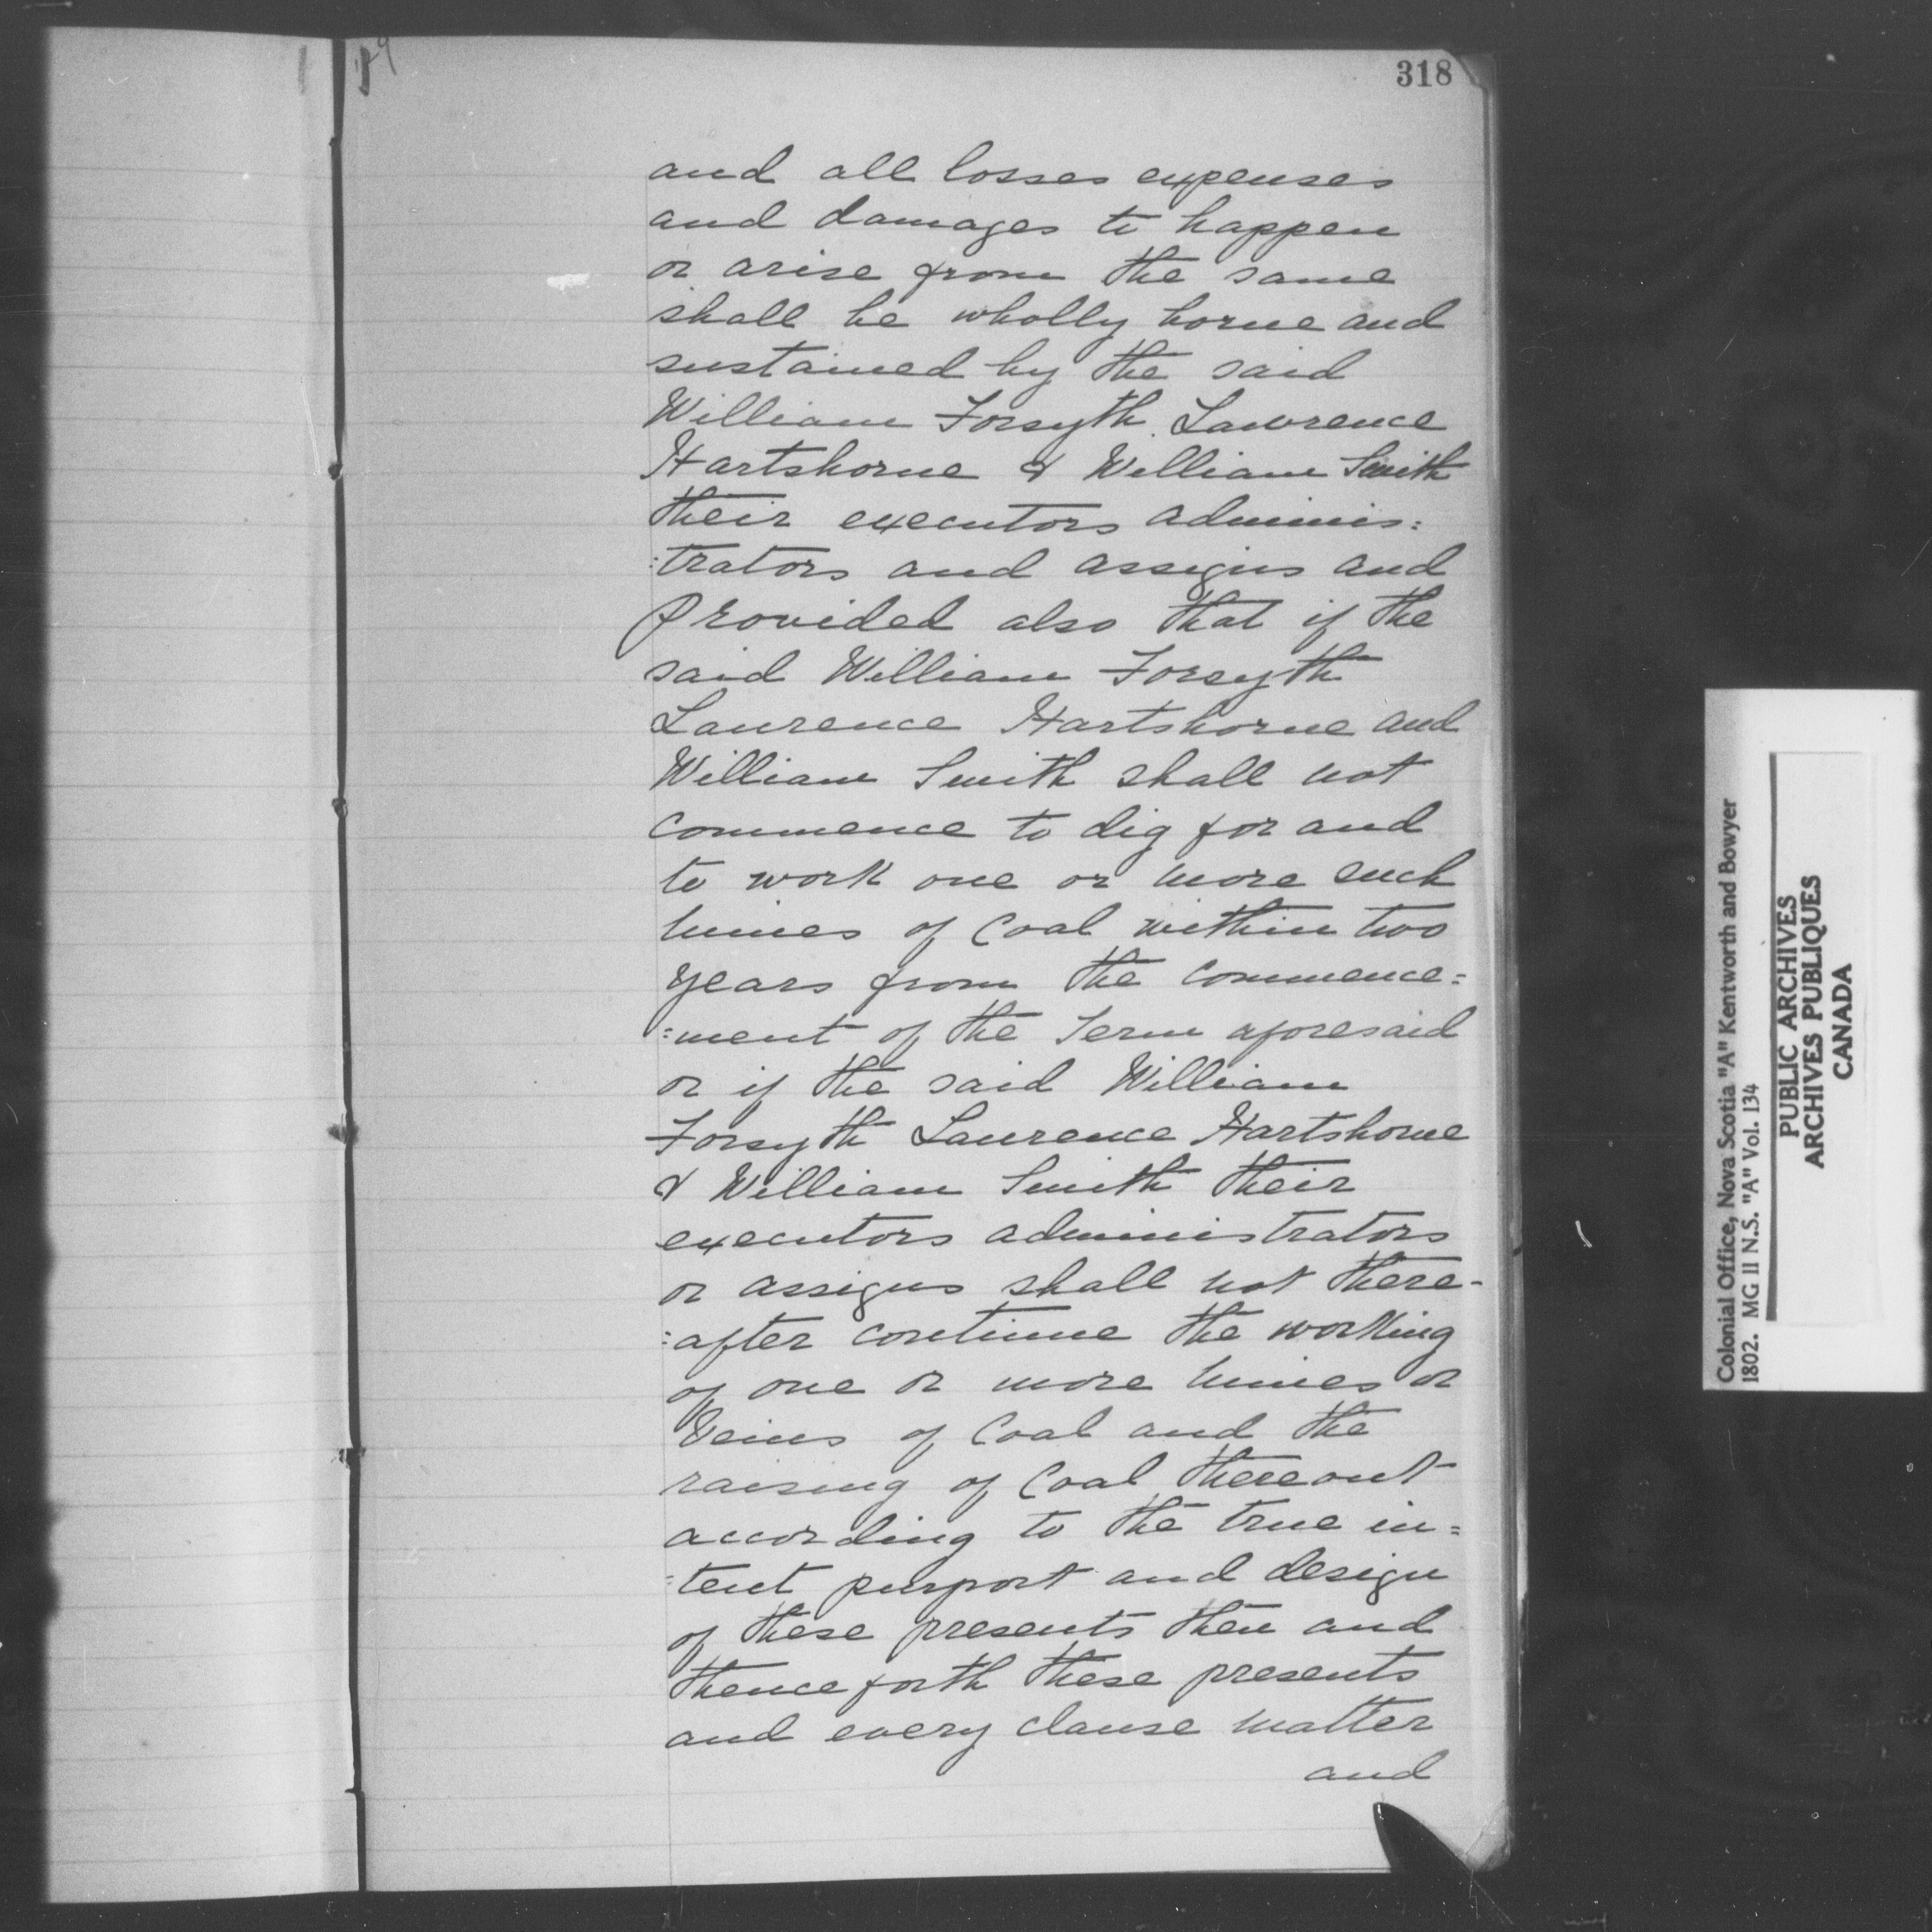 318
and all losses expenses
and damages to happen
or arise from the same
shall be wholly borne and
sustained by the said
William Forsyth Lawrence
Hartshorne & William Smith
their executors adminis:
:trators and assigns and
Provided also that if the
said William Forsyth
Laurence Hartshorne and
William Smith shall not
commence to dig for and
to work one or more such
mines of Coal within two
years from the commence=
=ment of the Term aforesaid
or if the said William
Forsyth Laurence Hartshorne
& William Smith their
executors administrators
or assigns shall not there-
:after continue the working
of one or more mines or
Veins of Coal and the
raising of Coal thereout
according to the true in=
=tent purport and design
of these presents then and
thenceforth these presents
and every clause matter
and
Colonial Office, Nova Scotia "A" Kentworth and Bowyer
1802. MG 11 N.S. "A" Vol. 134
PUBLIC ARCHIVES
ARCHIVES PUBLIQUES
CANADA